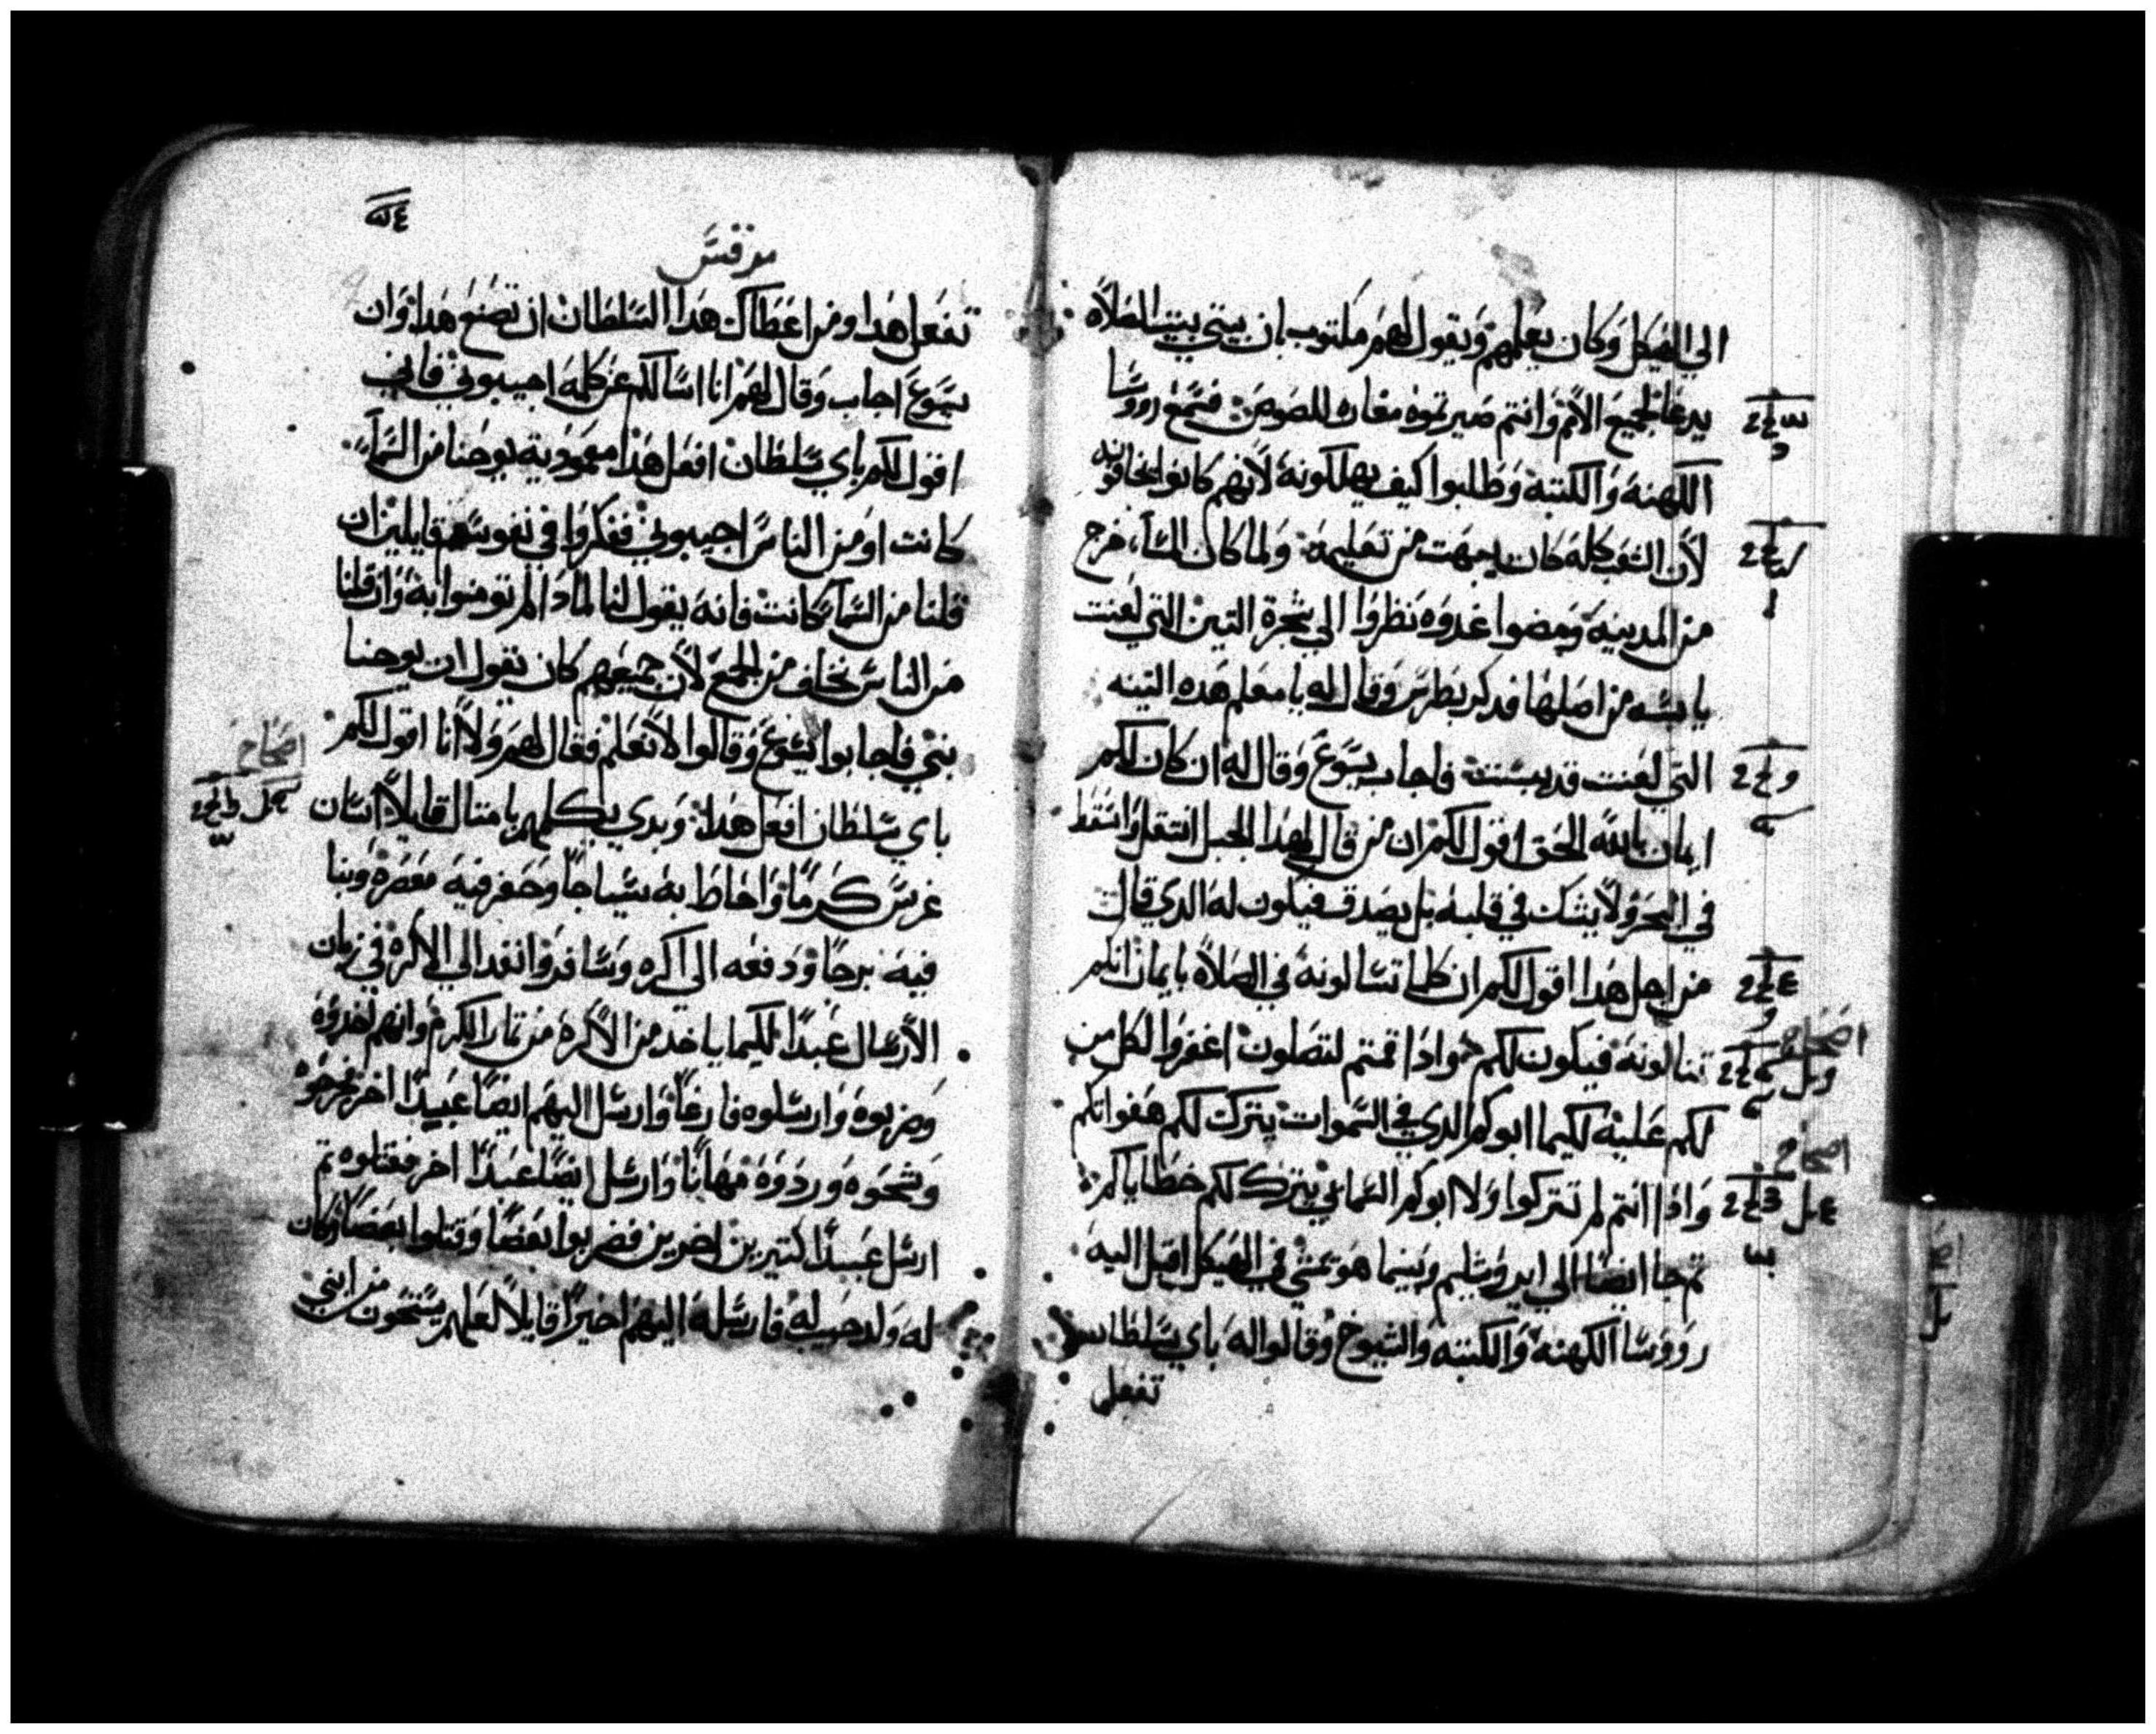 الي الهيكل وكان يعلمهم ويقول لهم مكتوب بان بيتي بيت الصلاه
يدعا لجميع الامم وانتم صيرتموه مغاره للصوص فسمع رووسا
الكهنه والكتبه وطلبوا كيف يهلكونه لانهم كانوا يخافونه
لان الشعب كله كان يبهت من تعليمه ولما كان المسا خرج
من المدينه ومضوا غدوه نظروا الي شجرة التين التي لعنت
يابسه من اصلها فدكر بطرس وقال له يا معلم هده التينه
التي لعنت قد يبست فاجاب يسوع وقال له ان كان لكم
ايمان بالله الحق اقول لكم ان من قال لهدا الجبل انتقل واسقط
في البحر ولا يشك في قلبه بل يصدق فيكون له الدي قال
من اجل هدا اقول لكم ان كلما تسالونه في الصلاه بايمان انكم
تنالونه فيكون لكم وادا قمتم لتصلون اغفروا لكل من
لكم عليه لكيما ابوكم الدي في السموات يترك لكم هفواتكم
وادا انتم لم تتركوا ولا ابوكم السمايي يترك لكم خطاياكم
تم جا ايضا الي ايروشليم وبينما هو يمشي في الهيكل اقبل اليه
رووسا الكهنه والكتبه والشيوخ وقالوا له باي سلطان
تفعل
اصحاح
اصحاح
مرقس
تفعل هدا ومن اعطاك هدا السلطان ان تصنع هدا وان
يسوع اجاب وقال لهم انا اسالكم عن كلمه اجيبوني فاني
اقول لكم باي سلطان افعل هدا معمودية يوحنا من السما
كانت او من الناس اجيبوني ففكروا في نفوسهم قايلين ان
قلنا من السما كانت فانه يقول لنا لمادا لم تومنوا به وان قلنا
من الناس نخاف من الجمع لان جميعهم كان يقول ان يوحنا
نبي فاجابوا يسوع وقالوا لا نعلم فقال لهم ولا انا اقول لكم
باي سلطان افعل هدا وبدي يكلمهم بامتال قايلا انسان
غرس كرما واحاط به سياجا وحفر فيه معصره وبنا
فيه برجا ودفعه الي اكره وسافر وانفد الي الاكره في زمان
الارسال عبدا لكيما ياخد من الاكره من تمار الكرم وانهم اخدوه
وضربوه وارسلوه فارغا وارسل اليهم ايضا عبيدا اخر فجرحوه
وشجوه وردوه مهانا وارسل ايضا عبدا اخر فقتلوه تم
ارسل عبيدا كتيرين اخرين فضربوا بعضا وقتلوا بعضا وكان
له ولد حبيب له فارسله اليهم اخيرا قايلا لعلهم يستحون من ابني
اصحاح